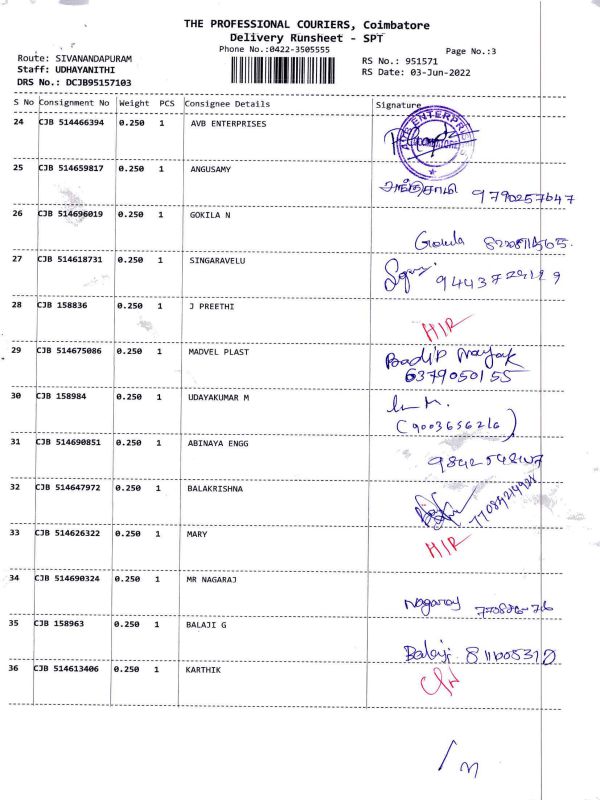 THE PROFESSIONAL COURIERS, Coimbatore
Delivery Runsheet - SPT
Phone No.:0422-3505555
Page No.:3
Route: SIVANANDAPURAM
RS No.: 951571
Staff: UDHAYANITHI
RS Date: 03-Jun-2022
DRS No.: DCJB95157103
S No Consignment No Weight PCS Consignee Details Signature
24 CJB 514466394 0.250 1 AVB ENTERPRISES
25 CJB 514659817 0.250 1 ANGUSAMY
அங்குசாமி 9790257647
26 CJB 514696019 0.250 1 GOKILA N
Gokila
27 CJB 514618731 0.250 1 SINGARAVELU
28 CJB 158836 0.250 1 J PREETHI
H/R
29 CJB 514675086 0.250 1 MADVEL PLAST
6379050155
30 CJB 158984 0.250 1 UDAYAKUMAR M
(9003656216)
31 CJB 514690851 0.250 1 ABINAYA ENGG
32 CJB 514647972 0.250 1 BALAKRISHNA
33 CJB 514626322 0.250 1 MARY
H/R
34 CJB 514690324 0.250 1 MR NAGARAJ
Nagaraj
35 CJB 158963 0.250 1 BALAJI G
Balaji
36 CJB 514613406 0.250 1 KARTHIK